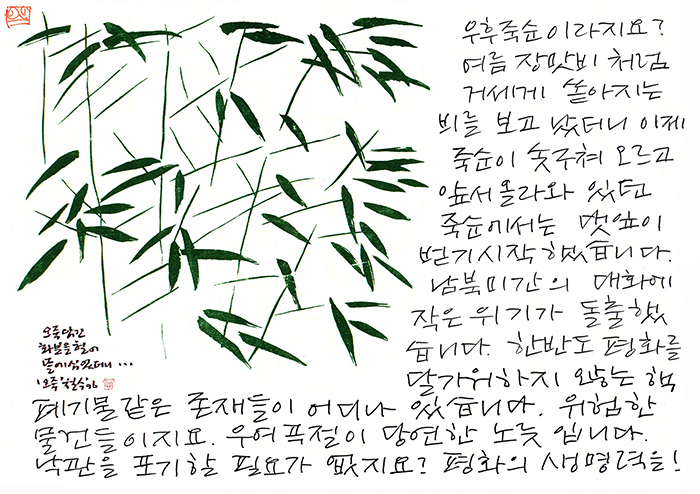 우후죽순이라지요?
여름 장맛비 처럼
거세게 쏟아지는
비를 보고 났더니 이제
죽순이 솟구쳐 오르고
앞서 올라와 있던
죽순에서는 댓잎이
벋기시작했습니다.
남북미간의 대화에
작은 위기가 돌출했
습니다. 한반도 평화를
달가워하지 않는 핵
폐기물같은 존재들이 어디나 있습니다. 위험한
물건들이지요. 우여곡절이 당연한 노릇입니다.
낙관을 포기할 필요가 없지요? 평화의 생명력을!
오죽 담긴
화분을 헐어
뜰에 심었더니...